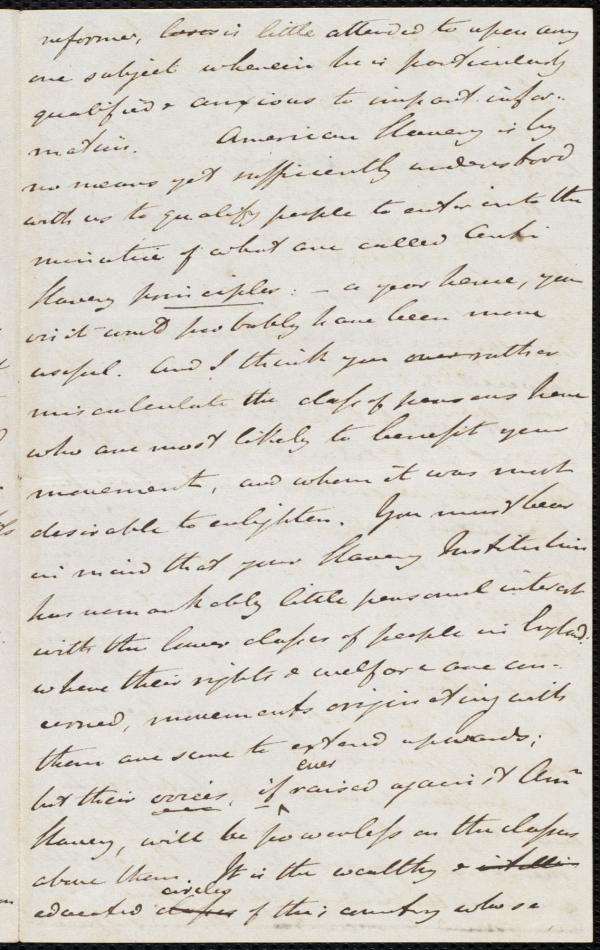 reformer, is little attended to upon any
one subject wherein he is particularly
qualified & anxious to impart infor-
mation. American Slavery is by
no means yet sufficiently understood
with us to qualify people to enter into the
minutiæ of what are called Anti
Slavery principles: – a year hence, your
visit would probably have been more
useful. And I think you rather
miscalculate the class of persons here
who are most likely to benefit your
movement, and whom it was most
desirable to enlighten. You must bear
in mind that your Slavery Institution
has remarkably little personal interest
with the lower classes of people in Englad:
where their rights & welfare are con-
cerned, movements originating with
them are sure to extend upwards;
but their voices, if ever raised against Amn
Slavery, will be powerless on the classes
above them. It is the wealthy &
educated circles of this country whose